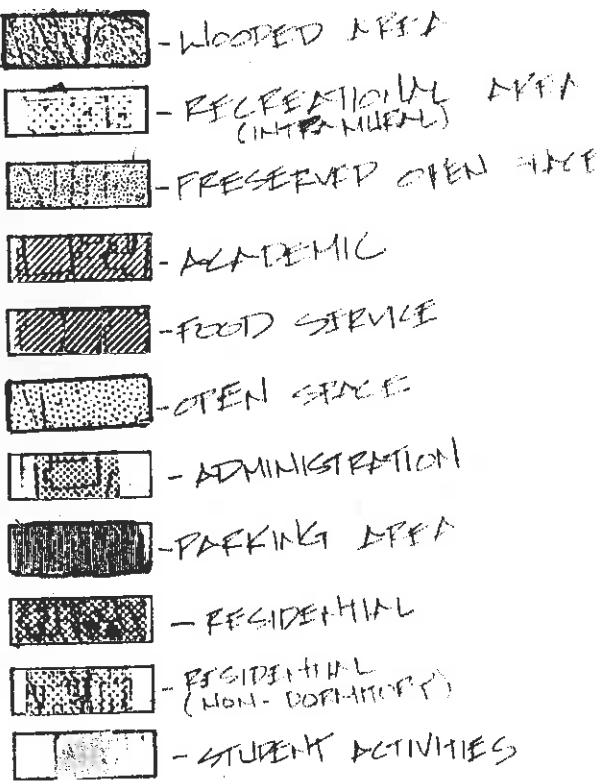 - WOODED AREA
- RECREATIONAL AREA
(INTRAMURAL)
- PRESERVED OPEN SPACE
- ACADEMIC
- FOOD SERVICE
- OPEN SPACE
- ADMINISTRATION
- PARKING AREA
- RESIDENTIAL
- RESIDENTIAL
(NON-DORMITORY)
- STUDENT ACTIVITIES